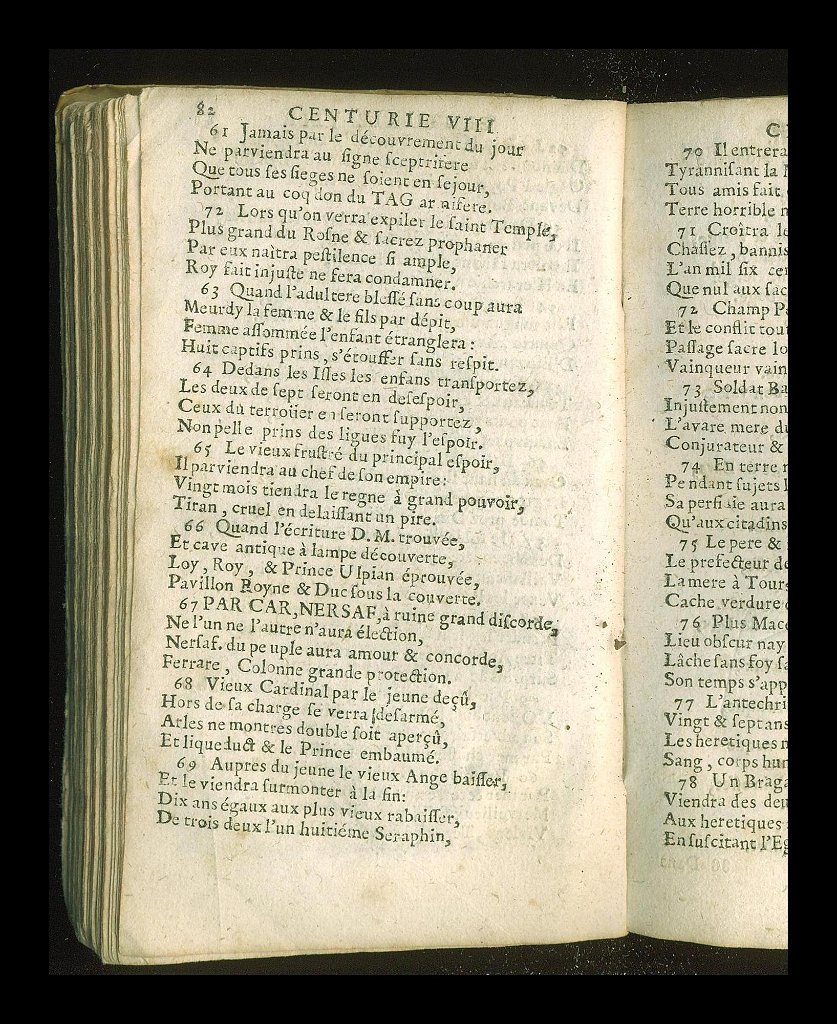 82 CENTURIE VIII
61 Jamais par le découvrement du jour
Ne parviendra au signe sceptrifere
Que tous ses sieges ne soient en sejour,
Portant au coq don du TAG ar aifere.
72 Lors qu'on verra expiler le saint Temple,
Plus grand du Rosne & sacrez prophaner
Par eux naîtra pestilence si ample,
Roy fait injuste ne fera condamner.
63 Quand l'adultere blessé sans coup aura
Meurdy la femme & le fils par dépit,
Femme assommée l'enfant étranglera:
Huit captifs prins, s'étouffer sans respit.
64 Dedans les Isles les enfans transportez,
Les deux de sept seront en desespoir,
Ceux du terroüer en seront supportez,
Nonpelle prins des ligues fuy l'espoir.
65 Le vieux frustré du principal espoir,
Il parviendra au chef de son empire:
Vingt mois tiendra le regne à grand pouvoir,
Tiran, cruel en delaissant un pire.
66 Quand l'écriture D. M. trouvée,
Et cave antique à lampe découverte,
Loy, Roy, & Prince Ulpian éprouvée,
Pavillon Royne & Duc sous la couverte.
67 PAR CAR, NERSAF, à ruine grand discorde,
Ne l'un ne l'autre n'aura élection,
Nersaf. du peuple aura amour & concorde,
Ferrare, Colonne grande protection.
68 Vieux Cardinal par le jeune deçû,
Hors de sa charge se verra desarmé,
Arles ne montres double soit aperçû,
Et liqueduct & le Prince embaumé.
69 Aupres du jeune le vieux Ange baisser,
Et le viendra surmonter à la fin:
Dix ans égaux aux plus vieux rabaisser,
De trois deux l'un huitiéme Seraphin,
C
70 Il entrera
Tyrannisant la
Tous amis fait
Terre horrible
71 Croitra le
Chassez, bannis
L'an mil six
Que nul aux
72 Champ
Et le conflit
Passage sacre
Vainqueur
73 Soldat
Injustement
L'avare mere
Conjurateur &
74 En terre
Pendant sujets
Sa perfidie aura
Qu'aux citadins
75 Le pere &
Le prefecteur
La mere à
Cache verdure
76 Plus
Lieu obscur
Lâche sans foy
Son temps
77 L'antechri
Vingt & sept ans
Les heretiques
Sang, corps
78 Un
Viendra des
Aux heretiques
En suscitant